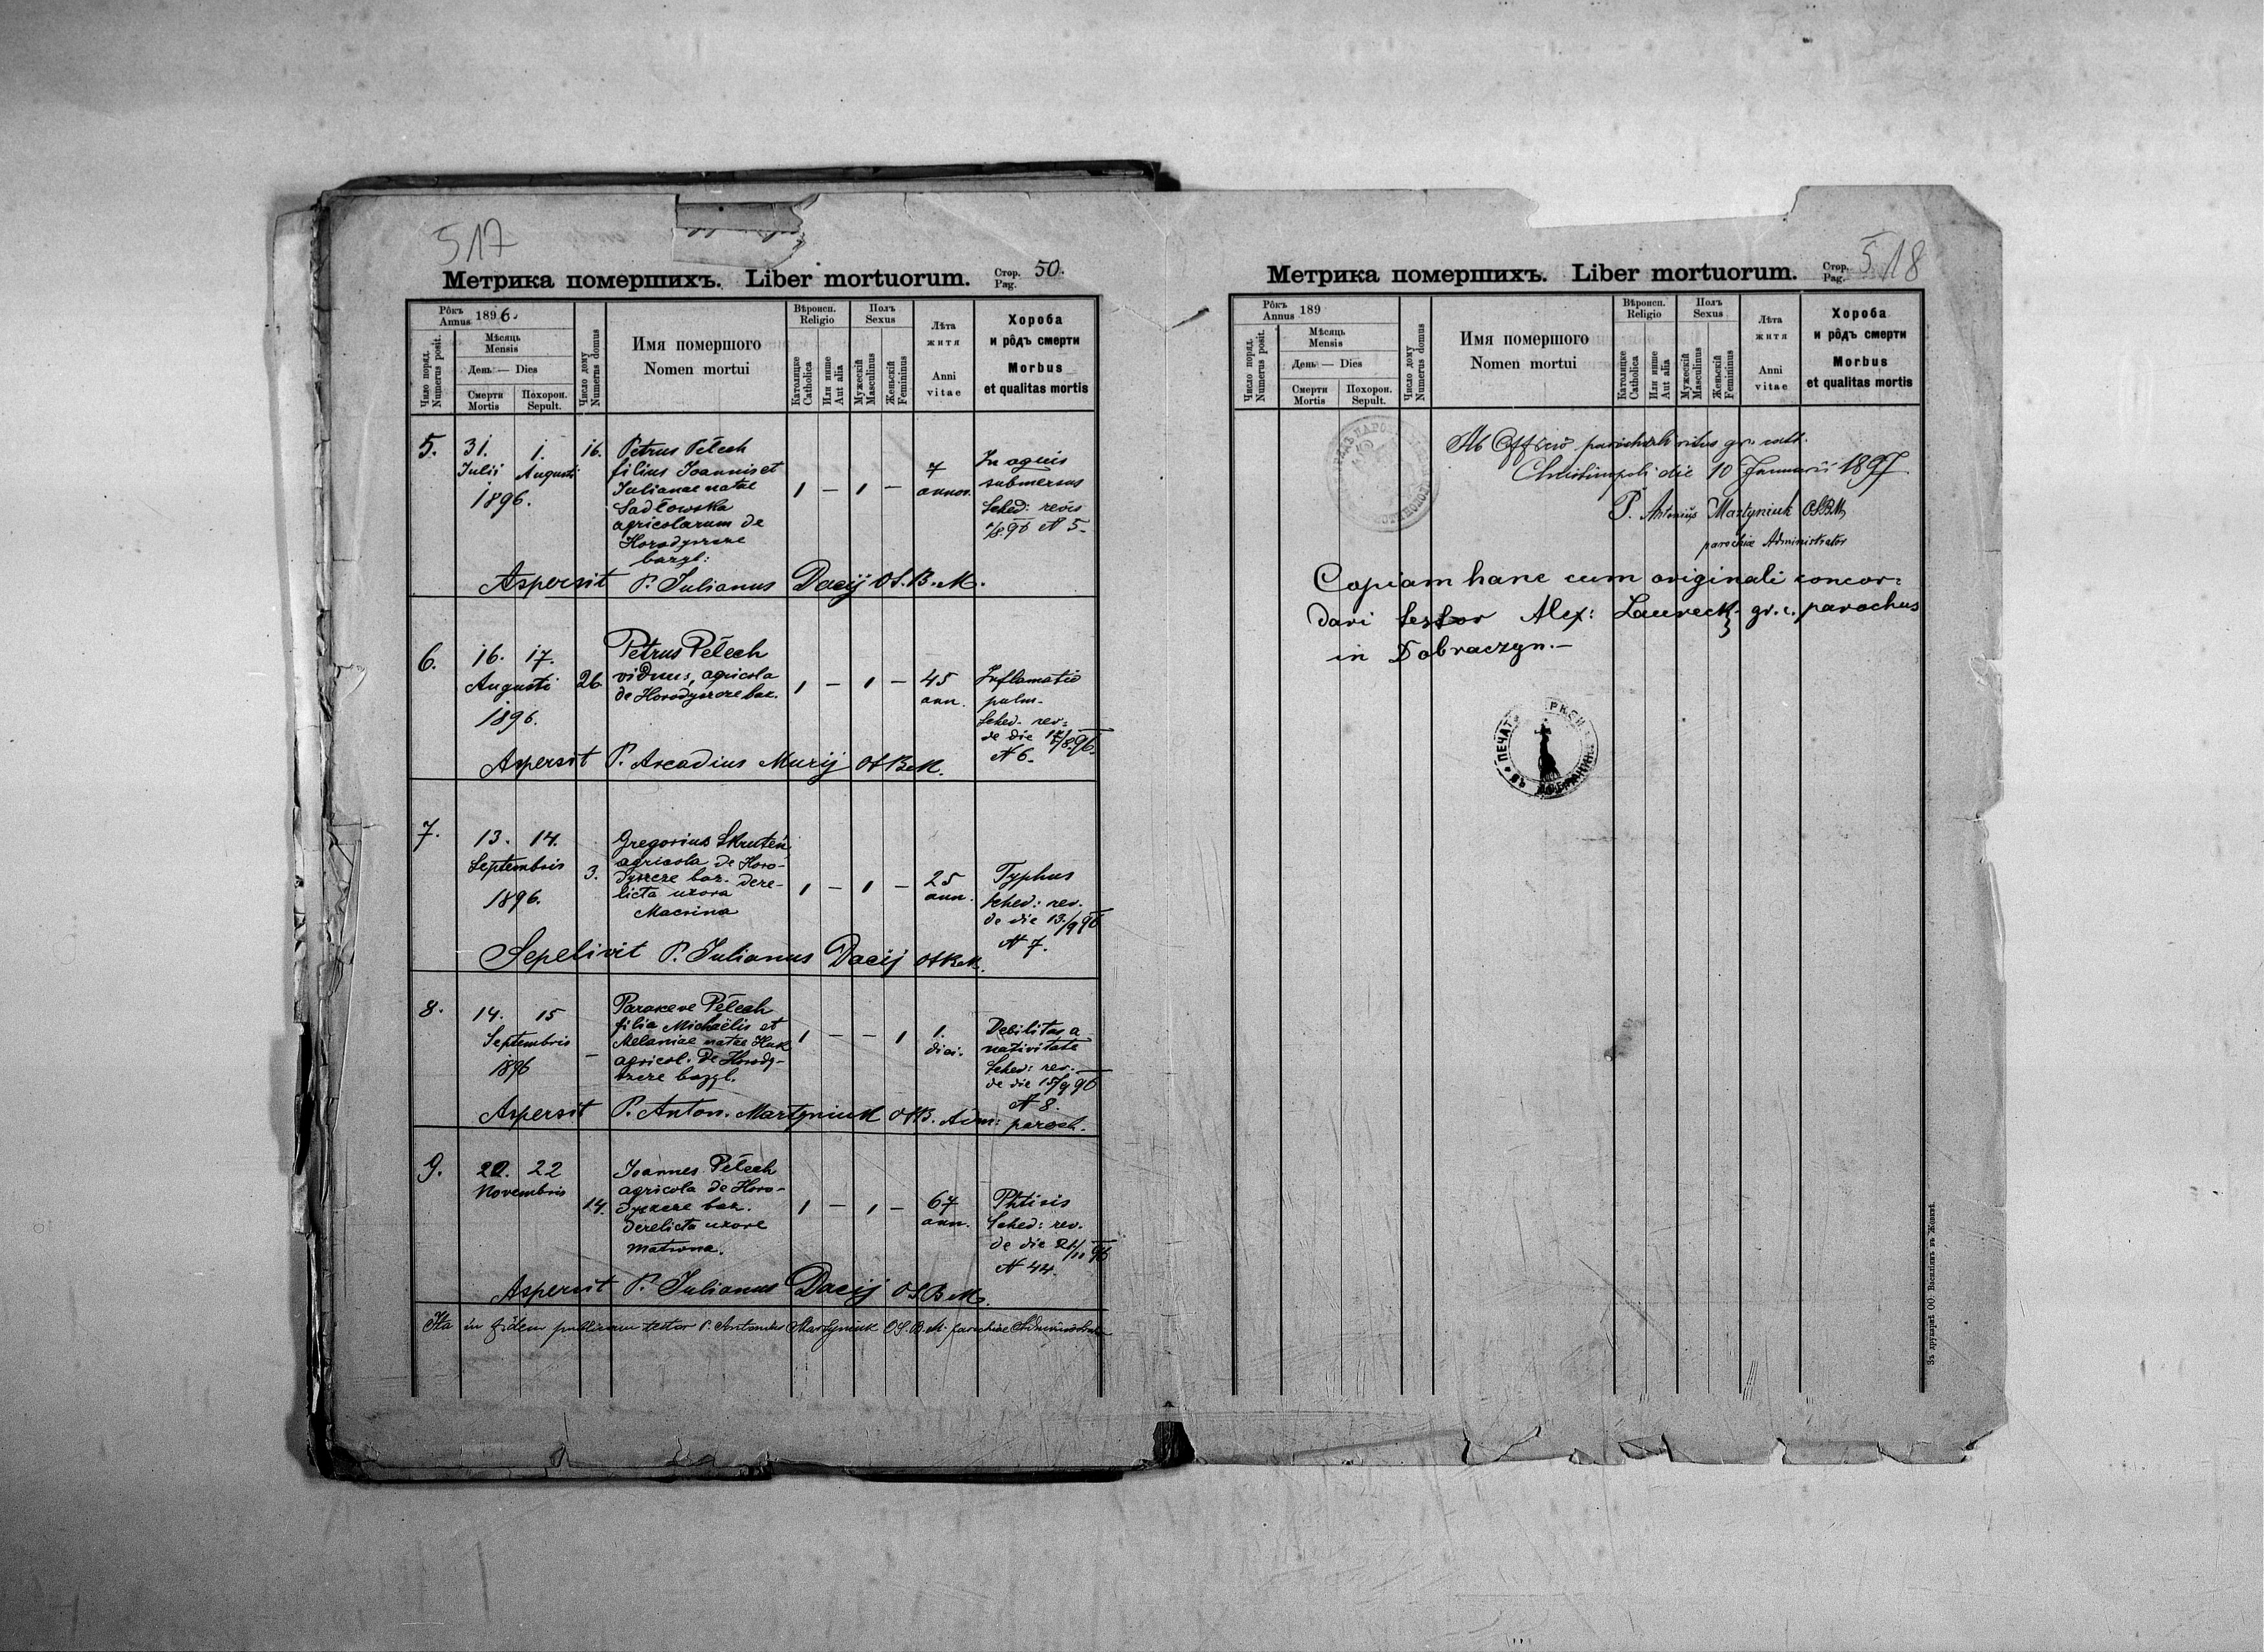 517
Метрика помершихъ. Liber mortuorum. Стор. Pag. 50.
Рôкъ Annus 1896.
Число поряд. Numerus posit.
Мѣсяць Mensis
День — Dies
Смерти Mortis
Похорон. Sepult.
Число дому Numerus domus
Имя помершого
Nomen mortui
Вѣроисп. Religio
Католицке Catholica
Или инше Aut alia
Полъ Sexus
Мужескій Masculinus
Женьскій Femininus
Лѣта житя
Anni vitae
Хороба
и рôдъ смерти
Morbus
et qualitas mortis
5. 31. 1. 16. Petrus Pełech
Julii Augusti filius Joannis et 7 In aquis
1896. Julianae natae 1 — 1 — annor. submersus
Sadłowska Sched: revis
agricolarum de 1/8 96 N 5
Horodyszcze
bazyl:
Aspersit P. Julianus Dacij O.S.B.M.
6. 16. 17. Petrus Pełech
Augusti 26. viduus, agricola 1 — 1 — 45 Inflamatio
1896. de Horodyszcze baz. ann. pulm.
Sched. rev.
de die 17/8 96.
N 6.
Aspersit P. Arcadius Muryj OSBM.
7. 13. 14. Gregorius Skruteń
Septembris 3. agricola de Horo-
1896. dyszcze baz. dere- 1 — 1 — 25 Typhus
licta uxora ann. Sched: rev.
Macrina de die 13/9 96
N 7.
Sepelivit P. Julianus Dacij OSBM.
8. 14. 15 Paraxeve Pełech
Septembris filia Michaëlis et 1 — — 1 1. Debilitas a
1896 — Melaniae natae Huk diei. nativitate
agricol. de Horody- Sched: rev.
szcze bazyl. de die 15/9 96
N 8.
Aspersit P. Anton. Martyniuk OSB. Adm: paroch.
9. 22 Joannes Pełech
Novembris agricola de Horo-
14. dyszcze baz. 1 — 1 — 67 Phtisis
derelicta uxore ann. Sched: rev.
Matrona. de die 21/11 96
N 44.
Aspersit P. Julianus Dacij OSBM.
Ita in fidem publicam testor P. Antonius Martyniuk O.S.B.M. parochiae Administrator
518
Метрика помершихъ. Liber mortuorum. Стор. Pag.
Рôкъ Annus 189
Число поряд. Numerus posit.
Мѣсяць Mensis
День — Dies
Смерти Mortis
Похорон. Sepult.
Число дому Numerus domus
Имя помершого
Nomen mortui
Вѣроисп. Religio
Католицке Catholica
Или инше Aut alia
Полъ Sexus
Мужескій Masculinus
Женьскій Femininus
Лѣта житя
Anni vitae
Хороба
и рôдъ смерти
Morbus
et qualitas mortis
Ab Officio parochiali ritus gr. cath.
Christinopoli die 10 Januarii 1897
P. Antonius Martyniuk OSBM
parochiae Administrator
Copiam hanc cum originali concor-
dari testor Alex: Laureck gr. c. parochus
in Dobraczyn.—
ПЕЧАТ
Зъ друкарнѣ ОО. Василіянъ въ Жовквѣ.